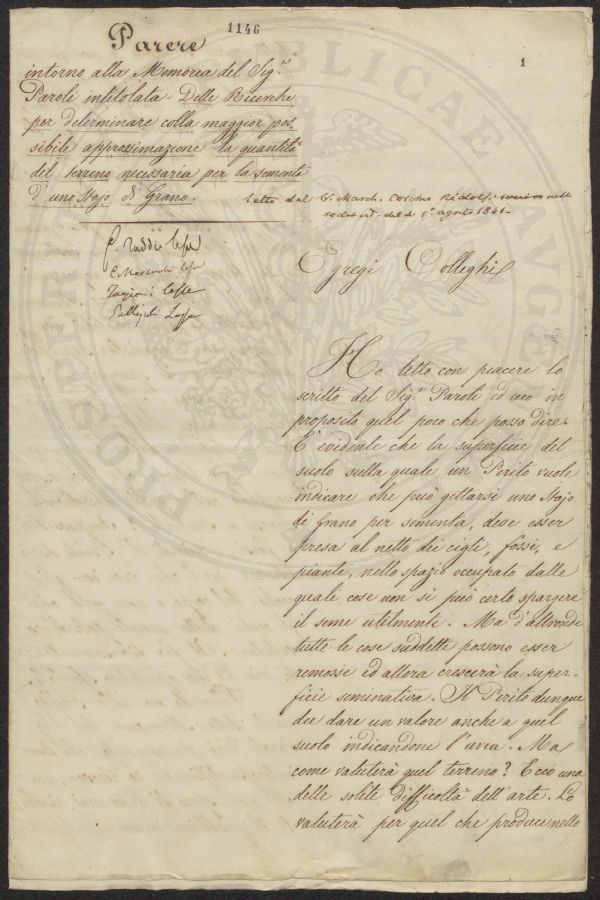 1146
1
Parere
intorno alla Memoria del Sig.r
Paroli intitolata Delle Ricerche
per determinare colla maggior pos-
sibile approssimazione la quantità
del terreno necessaria per la sementa
d'uno Stajo di Grano.
Letto dal March. Cosimo Ridolfi nella
del dì 1.º agosto 1841.
lesse
lesse
Targioni lesse
Lesse
Egregi Colleghi
Ho letto con piacere lo
scritto del Sig.r Paroli ed ecco in
proposito quel poco che posso dire.
E' evidente che la superficie del
suolo sulla quale un Perito vuole
indicare che può gettarsi uno Stajo
di Grano per sementa, deve esser
presa al netto dei cigli, fossi, e
piante, nello spazio occupato dalle
quali cose non si può certo spargere
il seme utilmente. Ma d'altronde
tutte le cose suddette possono esser
remosse ed allora crescerà la super-
ficie seminativa. Il Perito dunque
dee dare un valore anche a quel
suolo indicandone l'area. Ma
come valuterà quel terreno? E ciò una
delle solite difficoltà dell'arte. Lo
valuterà per quel che produce nello
PROSPERITATI PUBLICAE AUGENDAE